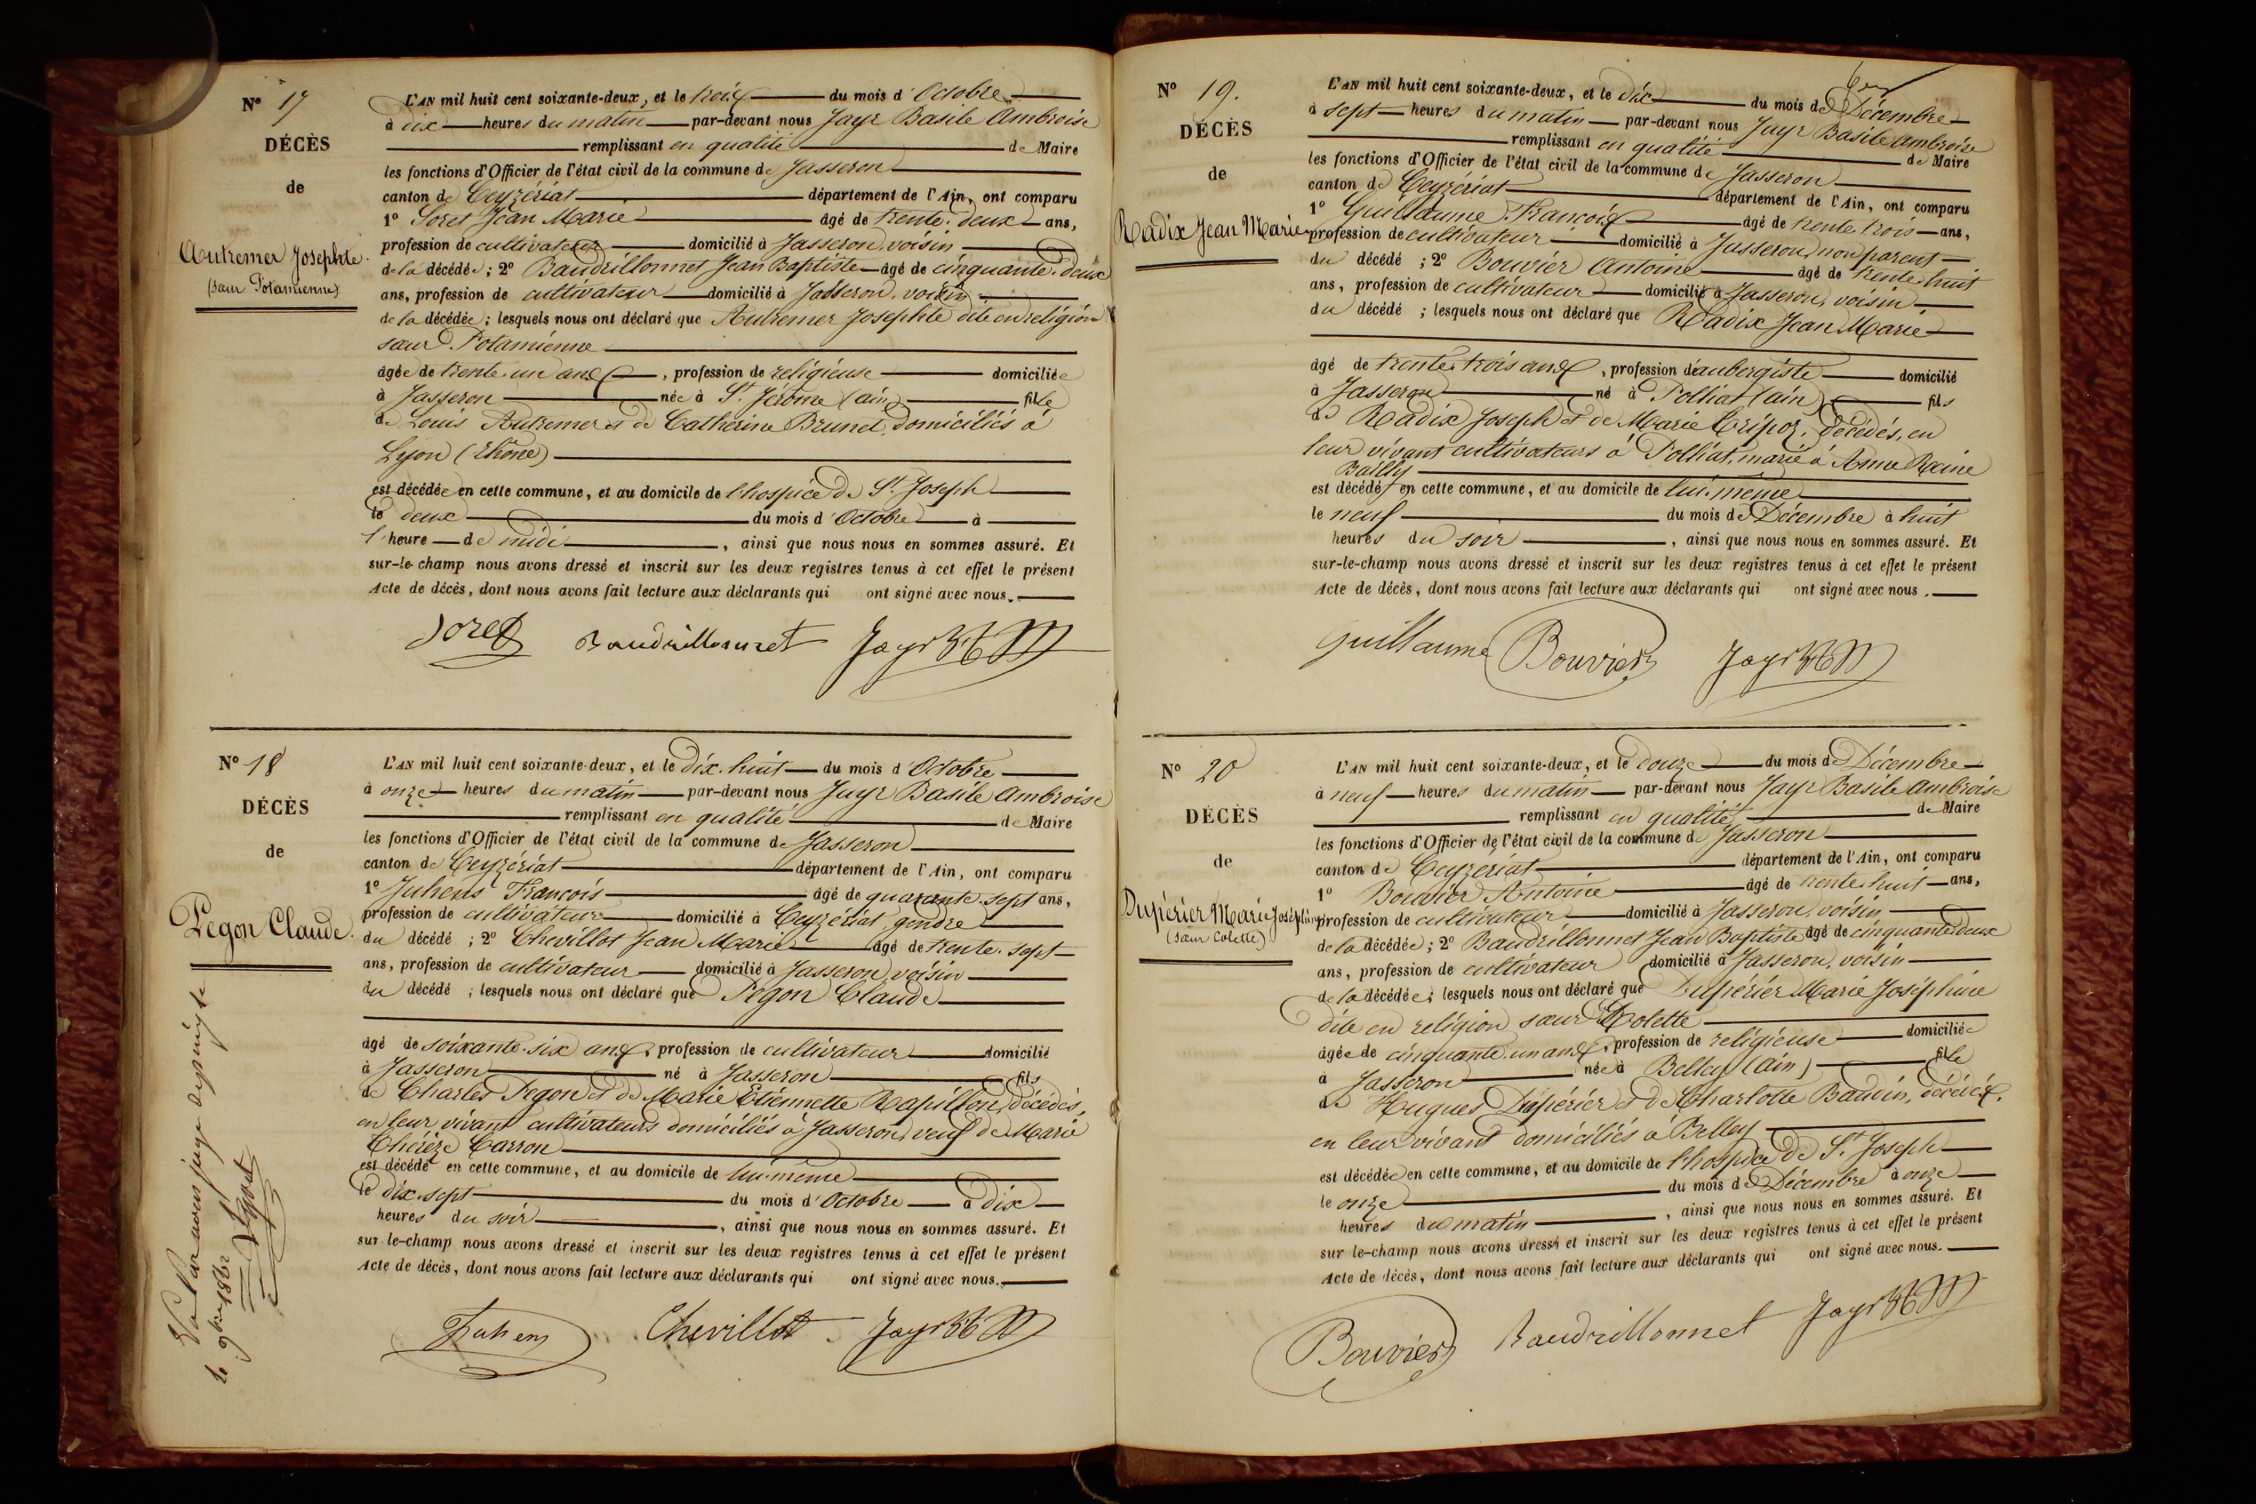 N° 17
DÉCÈS
de
Autremer Josephte
(sœur Potamienne)
L'AN mil huit cent soixante-deux, et le trois du mois d'Octobre
à dix heures du matin par-devant nous Jayr Basile Ambroise
remplissant en qualité de Maire
les fonctions d'Officier de l'état civil de la commune de Jasseron
canton de Ceyzériat département de l'Ain, ont comparu
1° Soret Jean Marie âgé de trente-deux ans,
profession de cultivateur domicilié à Jasseron, voisin
de la décédée; 2° Baudrillonnet Jean Baptiste âgé de cinquante-deux
ans, profession de cultivateur domicilié à Jasseron, voisin
de la décédée; lesquels nous ont déclaré que Autremer Josephte dite en religion
sœur Potamienne
âgée de trente-un ans, profession de religieuse domiciliée
à Jasseron née à St. Jérôme (ain) fille
de Louis Autremer et de Catherine Brunet, domiciliés à
Lyon (Rhône)
est décédée en cette commune, et au domicile de l'hospice de St. Joseph
le deux du mois d'Octobre à
l'heure de midi, ainsi que nous nous en sommes assuré. Et
sur-le-champ nous avons dressé et inscrit sur les deux registres tenus à cet effet le présent
Acte de décès, dont nous avons fait lecture aux déclarants qui ont signé avec nous.
Soret Baudrillonnet Jayr
N° 18
DÉCÈS
de
Pegon Claude.
L'AN mil huit cent soixante-deux, et le dix-huit du mois d'Octobre
à onze heures du matin par-devant nous Jayr Basile Ambroise
remplissant en qualité de Maire
les fonctions d'Officier de l'état civil de la commune de Jasseron
canton de Ceyzériat département de l'Ain, ont comparu
1° Juhens François âgé de quarante-sept ans,
profession de cultivateur domicilié à Ceyzériat, gendre
du décédé; 2° Chevillot Jean Marie âgé de trente-sept
ans, profession de cultivateur domicilié à Jasseron, voisin
du décédé; lesquels nous ont déclaré que Pegon Claude
âgé de soixante-six ans, profession de cultivateur domicilié
à Jasseron né à Jasseron fils
de Charles Pegon et de Marie Etiennette Rapillon, décédés,
en leur vivant cultivateurs domiciliés à Jasseron, veuf de Marie
Thérèze Carron
est décédé en cette commune, et au domicile de lui-même
le dix-sept du mois d'Octobre à dix
heures du soir, ainsi que nous nous en sommes assuré. Et
sur-le-champ nous avons dressé et inscrit sur les deux registres tenus à cet effet le présent
Acte de décès, dont nous avons fait lecture aux déclarants qui ont signé avec nous.
Juhens Chevillot Jayr
Vu Par nous juge
le 9bre 1862
N° 19.
DÉCÈS
de
Radix Jean Marie
L'AN mil huit cent soixante-deux, et le dix du mois de Décembre
à sept heures du matin par-devant nous Jayr Basile Ambroise
remplissant en qualité de Maire
les fonctions d'Officier de l'état civil de la commune de Jasseron
canton de Ceyzériat département de l'Ain, ont comparu
1° Guillaume François âgé de trente-trois ans,
profession de cultivateur domicilié à Jasseron, non parent
du décédé; 2° Bouvier Antoine âgé de trente-huit
ans, profession de cultivateur domicilié à Jasseron, voisin
du décédé; lesquels nous ont déclaré que Radix Jean Marie
âgé de trente-trois ans, profession d'aubergiste domicilié
à Jasseron né à Polliat (ain) fils
de Radix Joseph et de Marie Cripoz, décédés, en
leur vivant cultivateurs à Polliat, marié à Anne Reine
Bailly
est décédé en cette commune, et au domicile de lui-même
le neuf du mois de Décembre à huit
heures du soir, ainsi que nous nous en sommes assuré. Et
sur-le-champ nous avons dressé et inscrit sur les deux registres tenus à cet effet le présent
Acte de décès, dont nous avons fait lecture aux déclarants qui ont signé avec nous.
Guillaume Bouvier Jayr
N° 20
DÉCÈS
de
Dupérier Marie Joséphine
(sœur Colette)
L'AN mil huit cent soixante-deux, et le douze du mois de Décembre
à neuf heures du matin par-devant nous Jayr Basile Ambroise
remplissant en qualité de Maire
les fonctions d'Officier de l'état civil de la commune de Jasseron
canton de Ceyzériat département de l'Ain, ont comparu
1° Bouvier Antoine âgé de trente-huit ans,
profession de cultivateur domicilié à Jasseron, voisin
de la décédée; 2° Baudrillonnet Jean Baptiste âgé de cinquante-deux
ans, profession de cultivateur domicilié à Jasseron, voisin
de la décédée; lesquels nous ont déclaré que Dupérier Marie Joséphine
dite en religion sœur Colette
âgée de cinquante-un ans, profession de religieuse domiciliée
à Jasseron née à Belley (ain) fille
de Hugues Dupérier et de Charlotte Baudin, décédés,
en leur vivant domiciliés à Belley
est décédée en cette commune, et au domicile de l'hospice de St. Joseph
le onze du mois de Décembre à onze
heures du matin, ainsi que nous nous en sommes assuré. Et
sur-le-champ nous avons dressé et inscrit sur les deux registres tenus à cet effet le présent
Acte de décès, dont nous avons fait lecture aux déclarants qui ont signé avec nous.
Bouvier Baudrillonnet Jayr